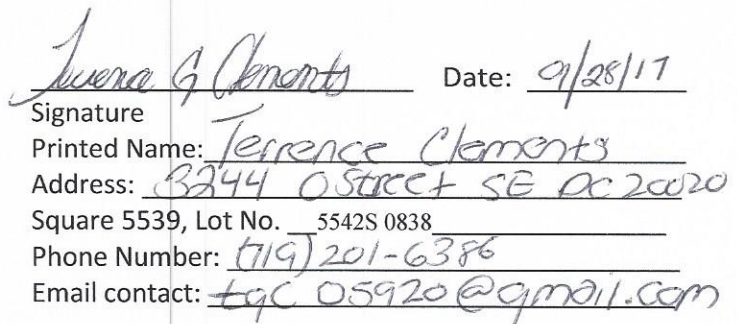 Terrence G Clements Date: 9/28/17
Signature
Printed Name: Terrence Clements
Address: 3244 O Street SE DC 20020
Square 5539, Lot No. 5542S 0838
Phone Number: (719) 201-6386
Email contact: tgc05920@gmail.com